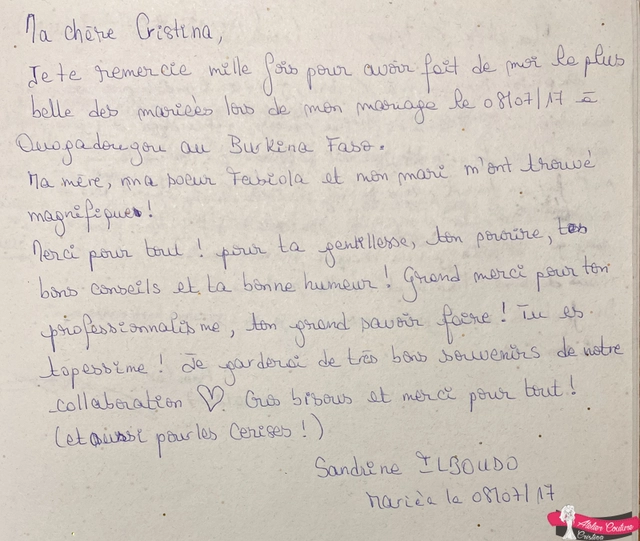 Ma chère Cristina,
Je te remercie mille fois pour avoir fait de moi la plus
belle des mariées lors de mon mariage le 08/07/17 à
Ouagadougou au Burkina Faso.
Ma mère, ma soeur Fabiola et mon mari m'ont trouvé
magnifique!
Merci pour tout ! pour ta gentillesse, ton sourire, tes
bons conseils et ta bonne humeur ! Grand merci pour ton
professionnalisme, ton grand savoir faire ! Tu es
topessime ! Je garderai de très bons souvenirs de notre
collaboration ♡ Gros bisous et merci pour tout !
(et aussi pour les cerises !)
Sandrine ILBOUDO
Mariée le 08/07/17
Atelier Couture
Cristina